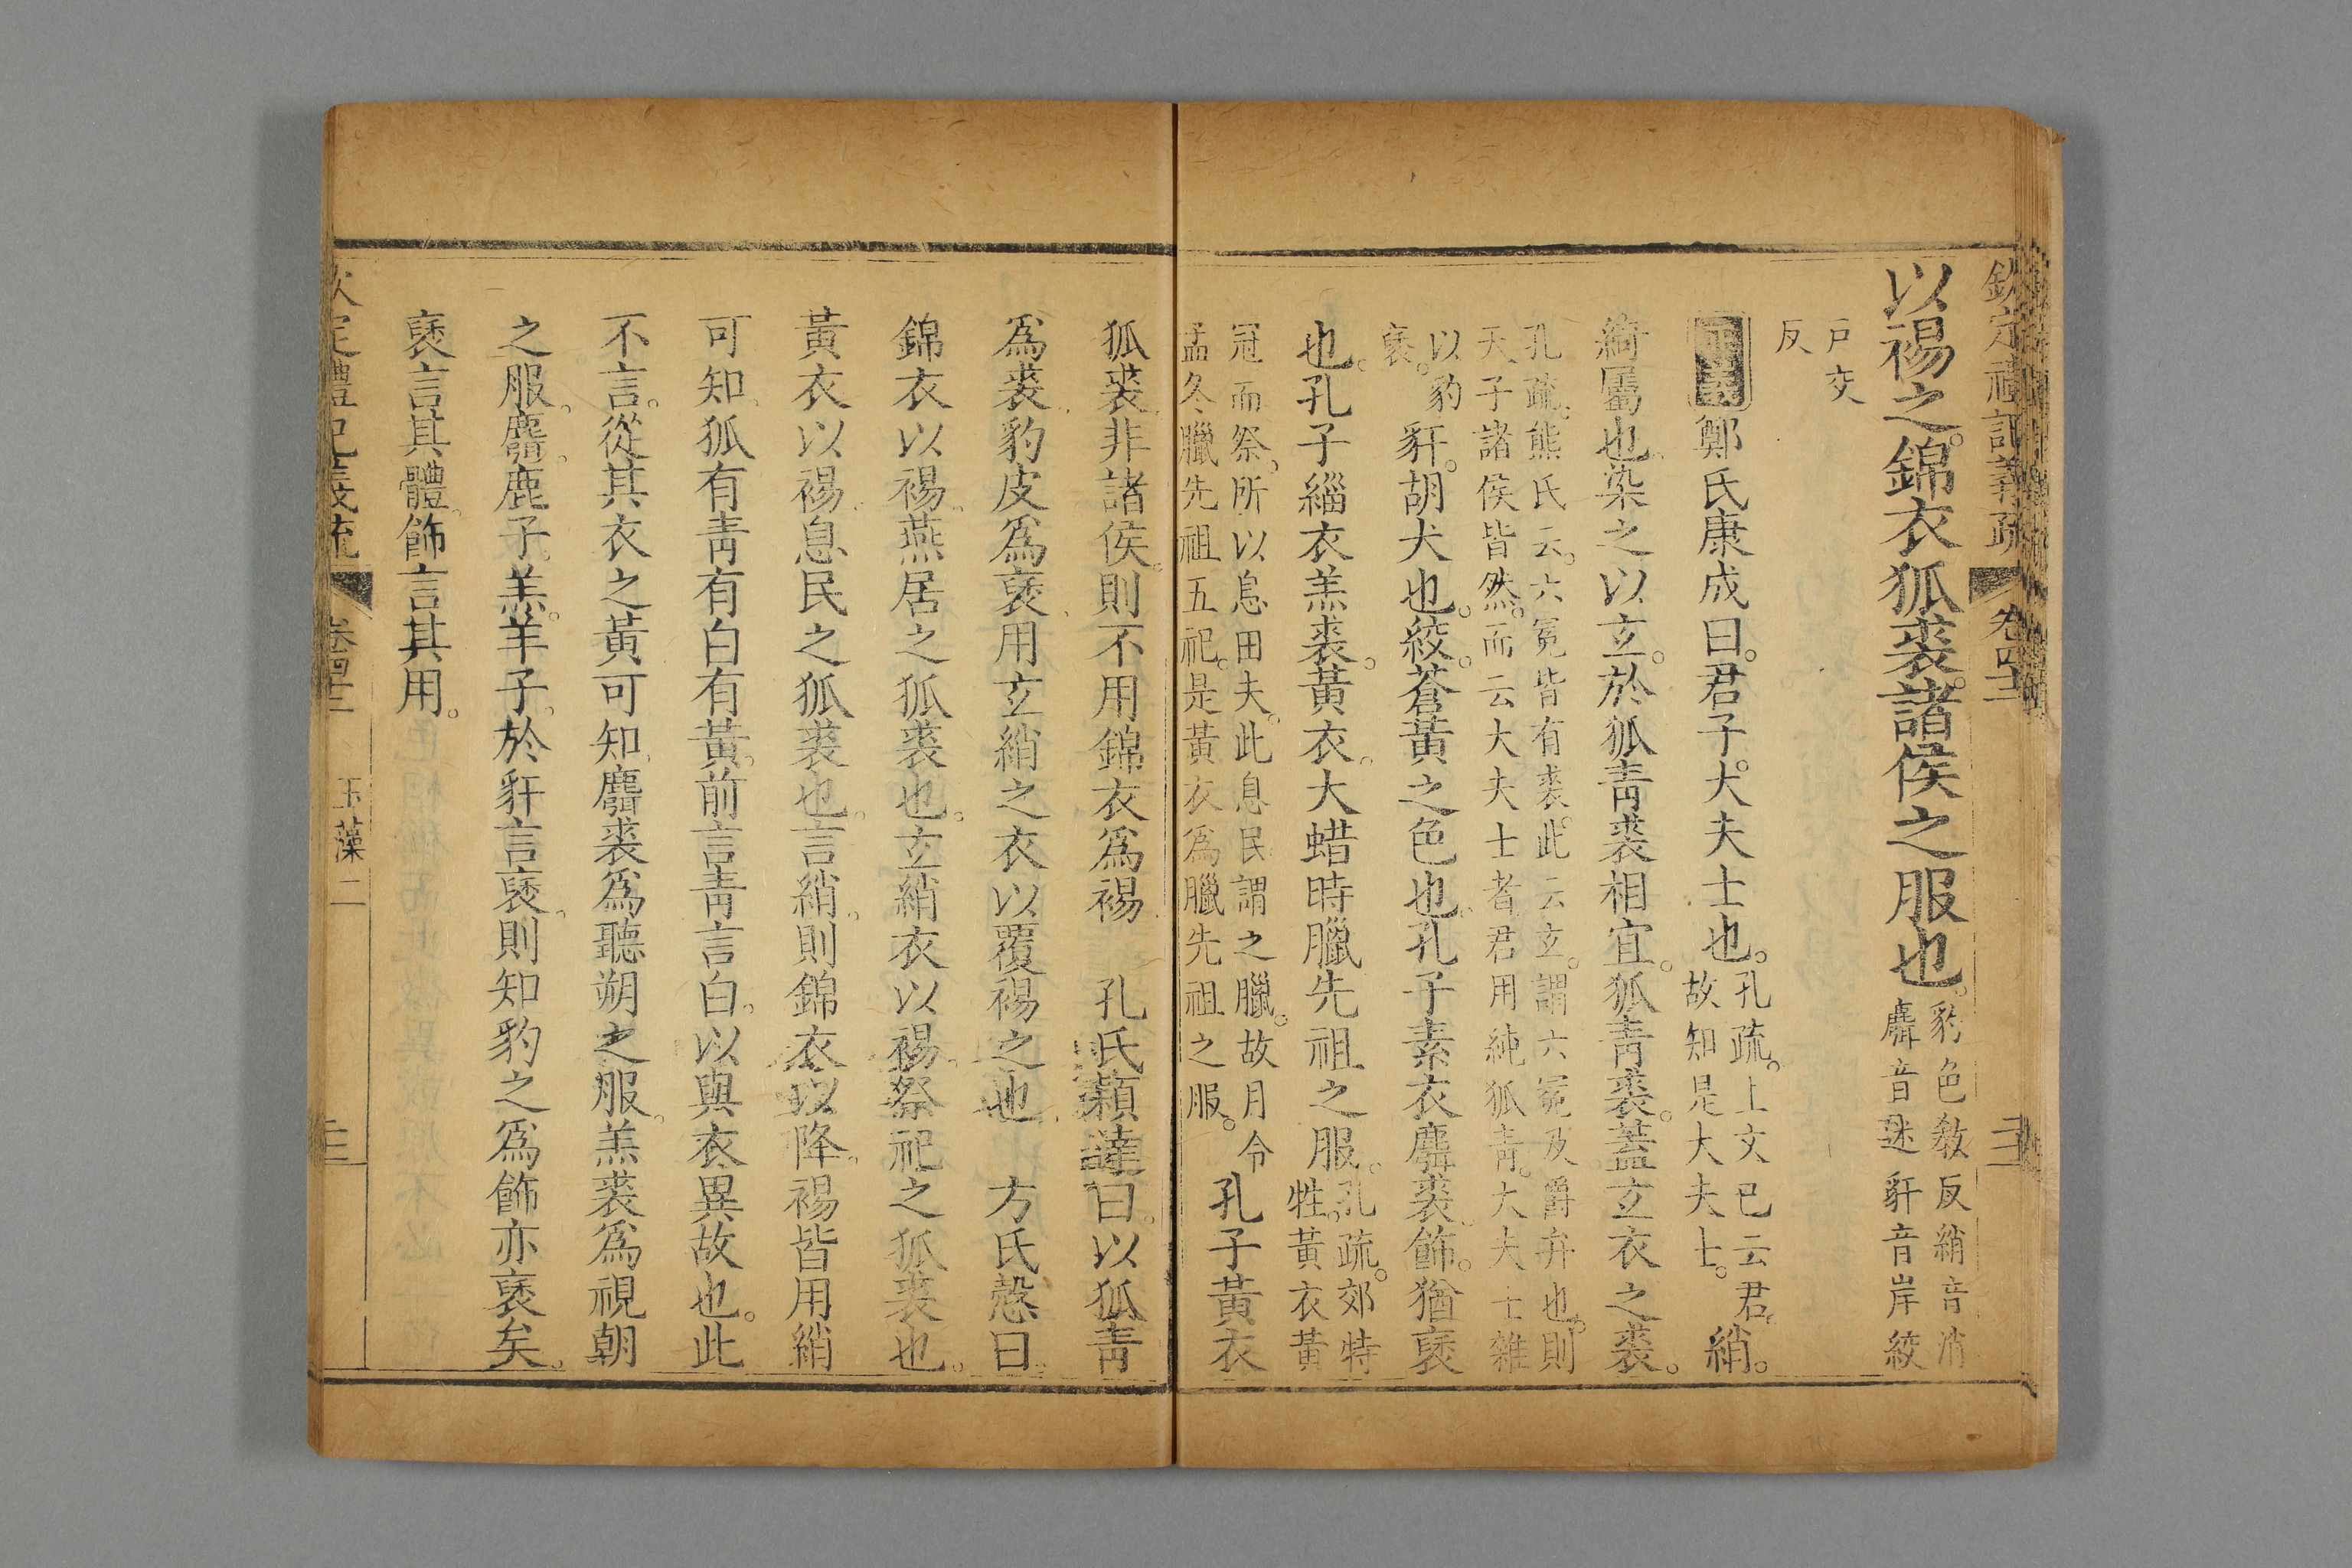 欽定禮記義疏 卷四十二
以裼之。錦衣狐裘。諸侯之服也。豹色敎反綃音消麛音迷豻音岸絞
戶交反
正義 鄭氏康成曰。君子。大夫士也。孔疏。上文已云君。故知是大夫士。綃。
綺屬也。染之以玄。於狐靑裘相宜。狐靑裘。蓋玄衣之裘。
孔疏。熊氏云。六冕皆有裘。此云玄。謂六冕及爵弁也。則天子諸侯皆然。而云大夫士者。君用純狐靑。大夫士雜
以豹褎。豻。胡犬也。絞。蒼黃之色也。孔子素衣麛裘。飾。猶褎
也。孔子緇衣羔裘。黃衣。大蜡時臘先祖之服。孔疏。郊特牲。黃衣黃
冠而祭。所以息田夫。此息民謂之臘。故月令孟冬臘先祖五祀。是黃衣爲臘先祖之服。孔子黃衣
狐裘。非諸侯。則不用錦衣爲裼 孔氏穎達曰。以狐靑
爲裘。豹皮爲褎。用玄綃之衣以覆裼之也 方氏慤曰。
錦衣以裼。燕居之狐裘也。玄綃衣以裼。祭祀之狐裘也。
黃衣以裼。息民之狐裘也。言綃。則錦衣以降。裼皆用綃
可知。狐有靑有白有黃。前言靑言白。以與衣異故也。此
不言。從其衣之黃可知。麛裘爲聽朔之服。羔裘爲視朝
之服。麛。鹿子。羔。羊子。於豻言褎。則知豹之爲飾亦褎矣。
褎言其體。飾言其用。
欽定禮記義疏 卷四十二 玉藻二